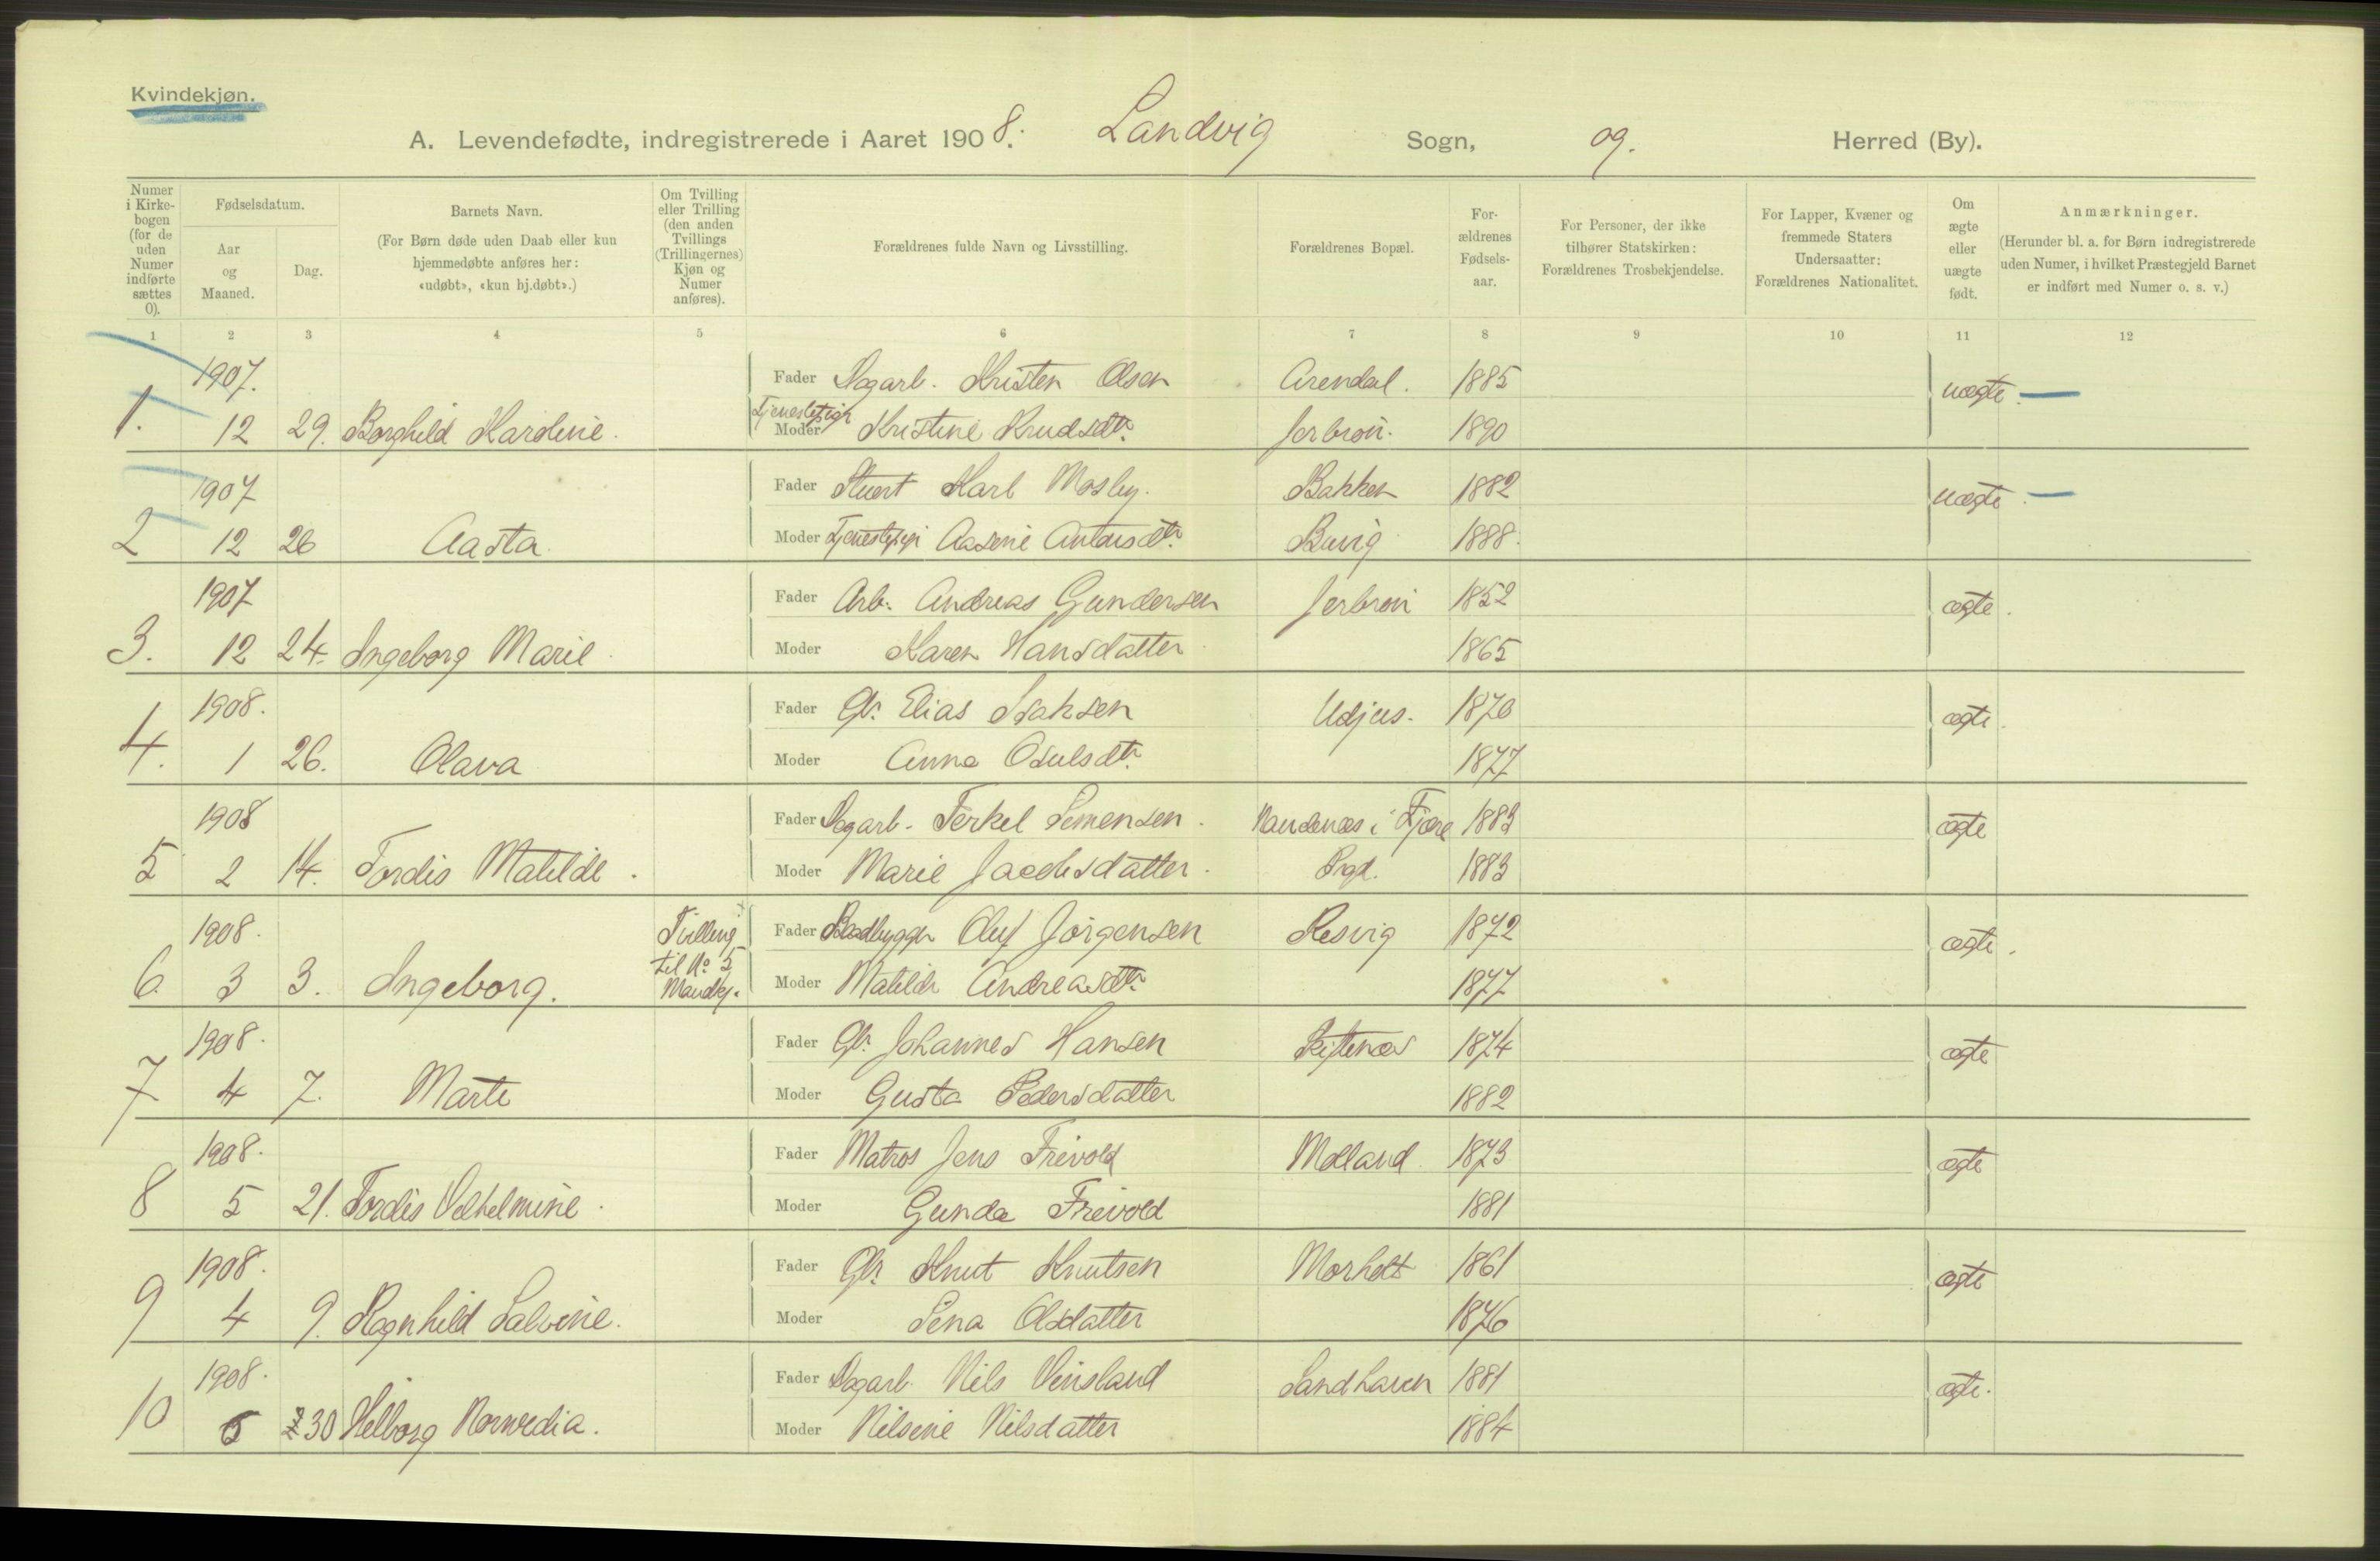 Kvindekjøn.
A. Levendefødte, indregistrerede i Aaret 1908. Landvig Sogn, og. Herred (By).
Numer i Kirkebogen (for de uden Numer indførte sættes 0).
Fødselsdatum.
Aar og Maaned.
Dag.
Barnets Navn.
(For Børn døde uden Daab eller kun hjemmedøbte anføres her: «udøbt», «kun hj.døbt».)
Om Tvilling eller Trilling (den anden Tvillings (Trillingernes) Kjøn og Numer anføres).
Forældrenes fulde Navn og Livsstilling.
Forældrenes Bopæl.
Forældrenes Fødselsaar.
For Personer, der ikke tilhører Statskirken: Forældrenes Trosbekjendelse.
For Lapper, Kvæner og fremmede Staters Undersaatter: Forældrenes Nationalitet.
Om ægte eller uægte født.
Anmærkninger.
(Herunder bl. a. for Børn indregistrerede uden Numer, i hvilket Præstegjeld Barnet er indført med Numer o. s. v.)
1 2 3 4 5 6 7 8 9 10 11 12
1907. Fader Dagarb. Kristen Olsen Arendal. 1885 uægte. —
1. 12 29. Borghild Karoline. Tjenestepige Moder Kristine Knudsdtr. Jerbron. 1890
1907 Fader Stuert Karl Mosby. Bakken 1882 uægte. —
2 12 26 Aasta. Moder Tjenestepige Aasene Antonsdtr. Buvig 1888.
1907 Fader Arb. Andreas Gundersen Jerbron 1852 ægte.
3. 12 24. Ingeborg Marie. Moder Karen Hansdatter 1865
1908. Fader Gbr. Elias Isaksen Udjus. 1870 ægte.
4. 1 26. Olava Moder Anna Osulsdtr. 1877
1908 Fader Dagarb. Terkel Simensen. i Fjære 1883 ægte
5 2 14. Tordis Matilde. Moder Marie Jacobsdatter. Prgd. 1883
1908. Tvilling Fader Baadbygger Oluf Jørgensen Resvig 1872 ægte.
6. 3 3. Ingeborg. til No 5 Mandkj. Moder Matilde Andreasdtr. 1877
1908. Fader Gbr. Johannes Hansen Skiftenæs 1874 ægte
7 4 7. Marte Moder Gusta Pedersdatter 1882
1908. Fader Matros Jens Frivold Molland 1873 ægte
8 5 21. Tordis Velhelmine. Moder Gunda Frivold 1881
1908. Fader Gbr. Knut Knutsen Morholt 1861 ægte
9 4 9. Ragnhild Salvine. Moder Sena Olsdatter 1876
1908. Fader Dagarb. Nils Vinsland Landhaven 1881 ægte.
10 5 30 Helborg Norvedia. Moder Nilsine Nilsdatter 1884